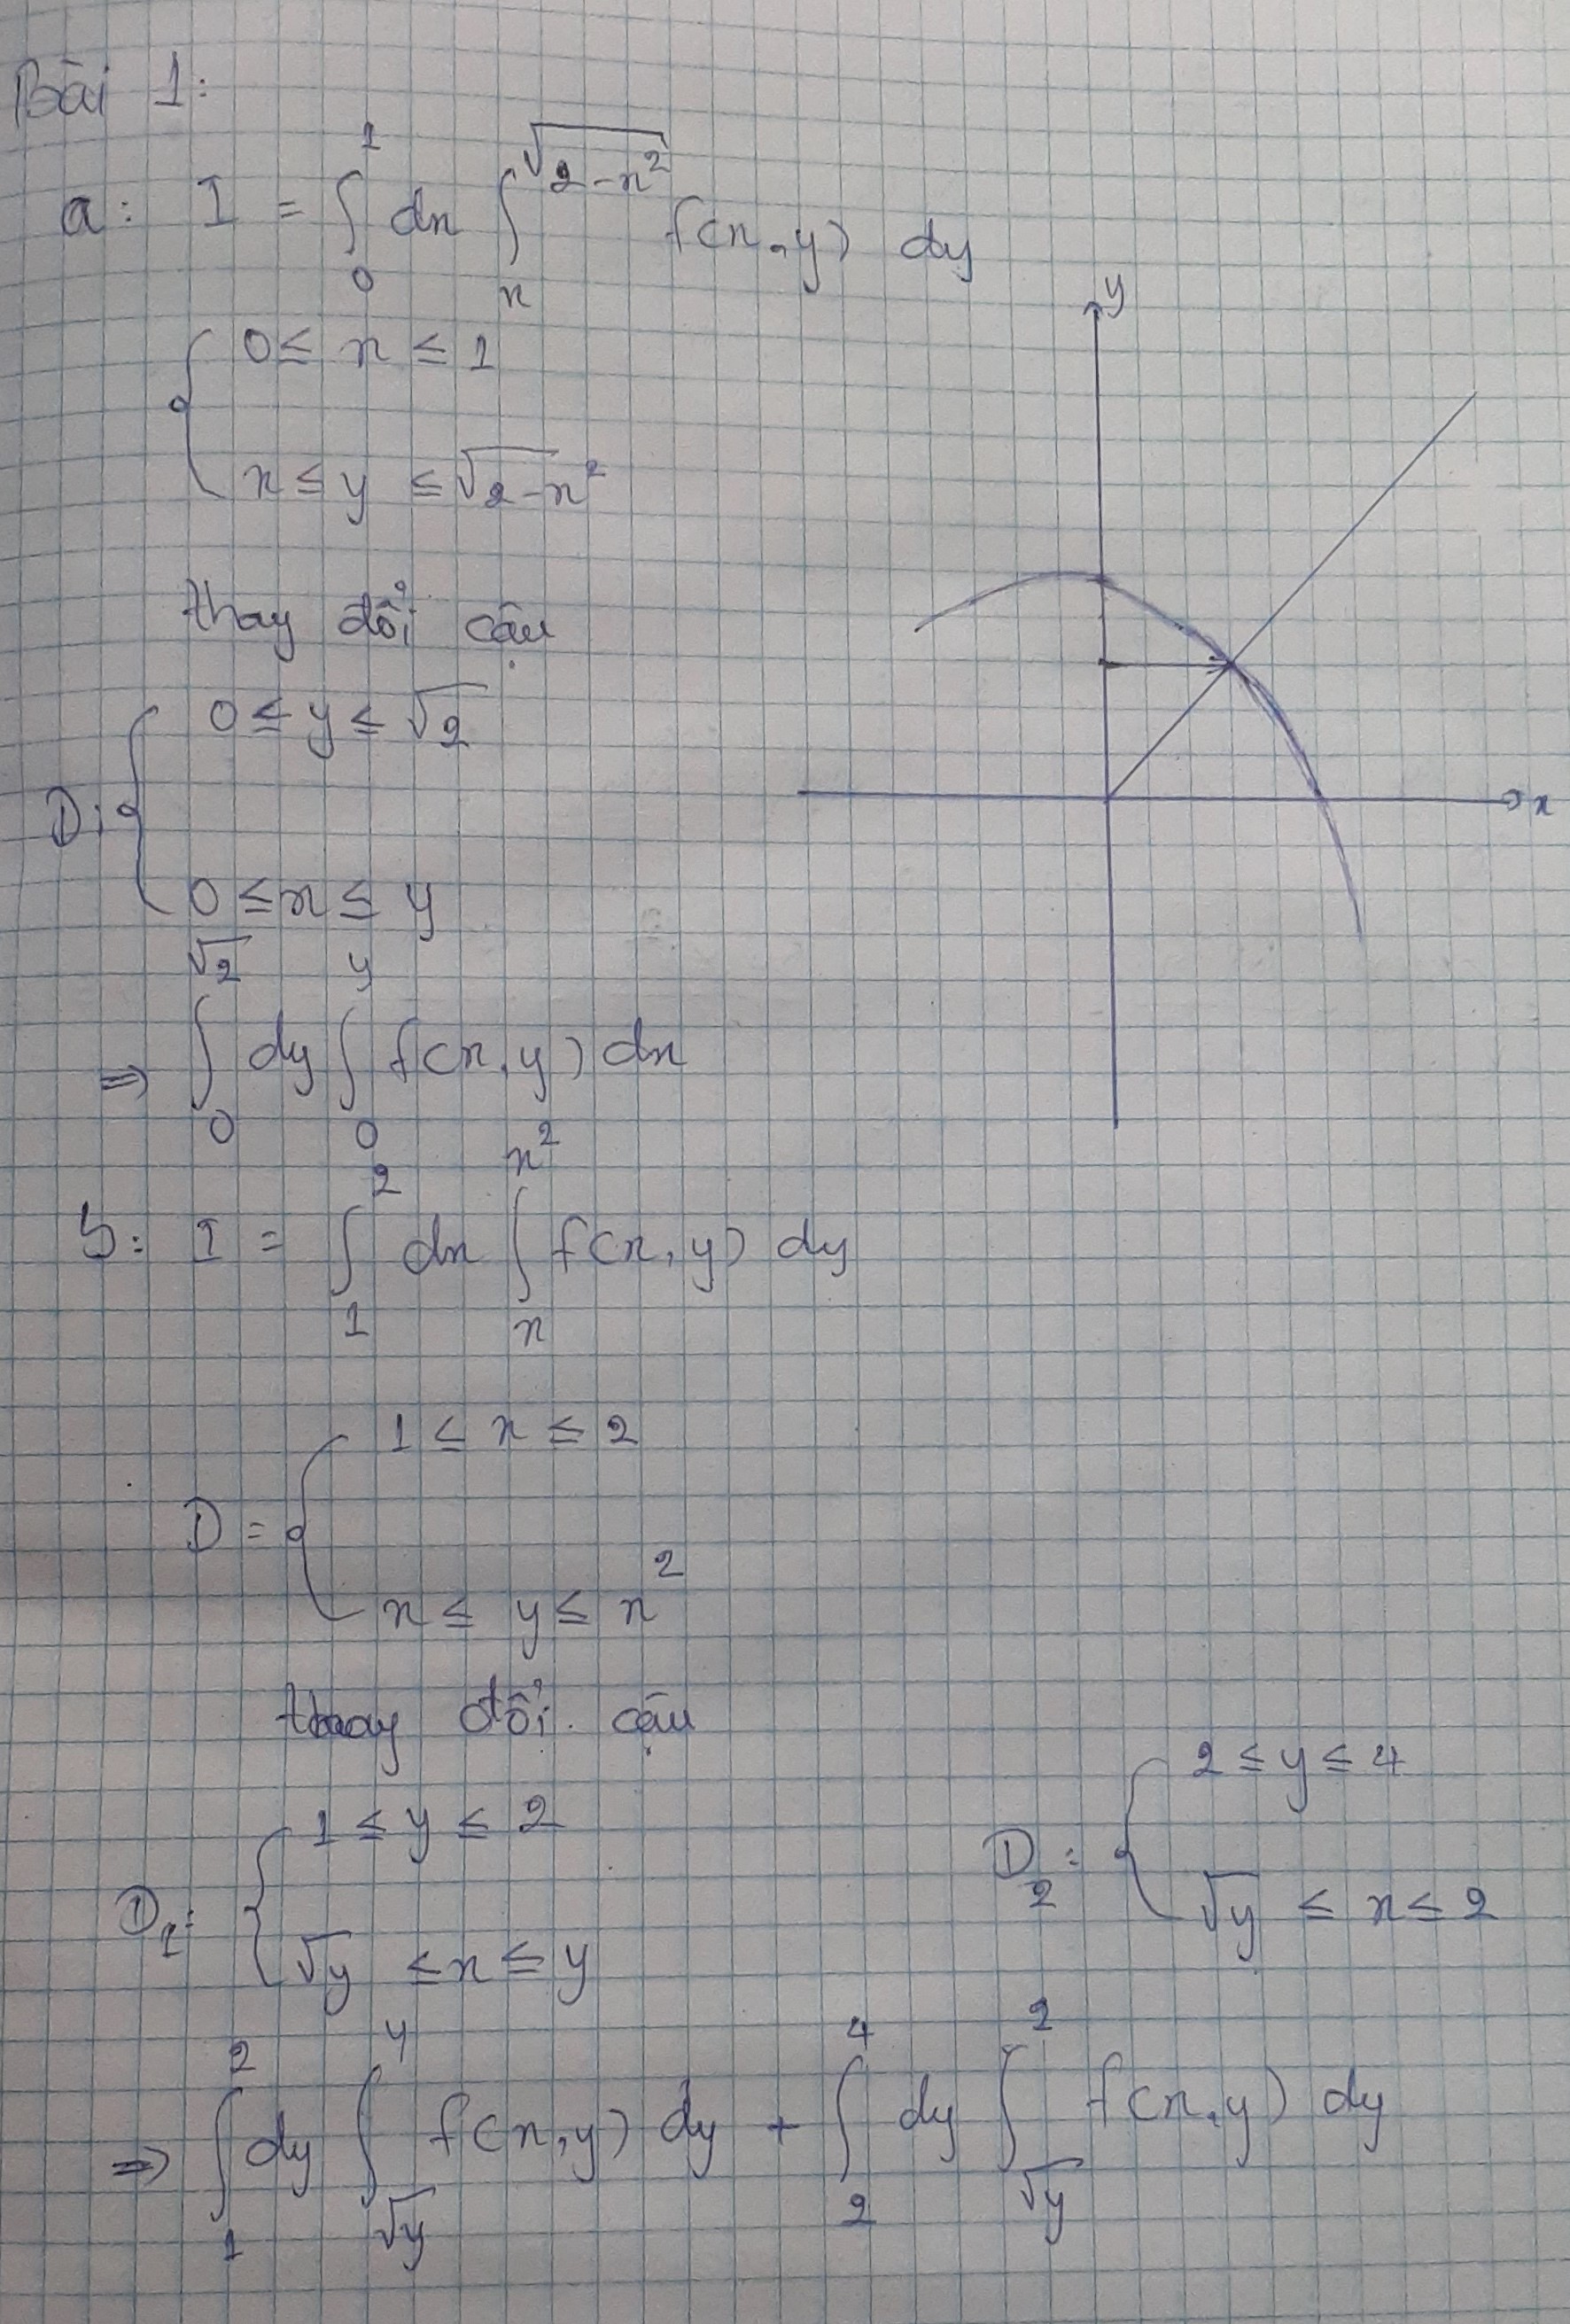 Bài 1:
a: I = ∫₀¹ dx ∫ₓ^√(2-x²) f(x,y) dy
{ 0 ≤ x ≤ 1
x ≤ y ≤ √2-x²
thay đổi cận
D: { 0 ≤ y ≤ √2
0 ≤ x ≤ y
⇒ ∫₀^√2 dy ∫₀^y f(x,y) dx
y
x
b: I = ∫₁² dx ∫ₓ^x² f(x,y) dy
D = { 1 ≤ x ≤ 2
x ≤ y ≤ x²
thay đổi cận
D₁: { 1 ≤ y ≤ 2
√y ≤ x ≤ y
D₂: { 2 ≤ y ≤ 4
√y ≤ x ≤ 2
⇒ ∫₁² dy ∫_√y^y f(x,y) dy + ∫₂⁴ dy ∫_√y² f(x,y) dy